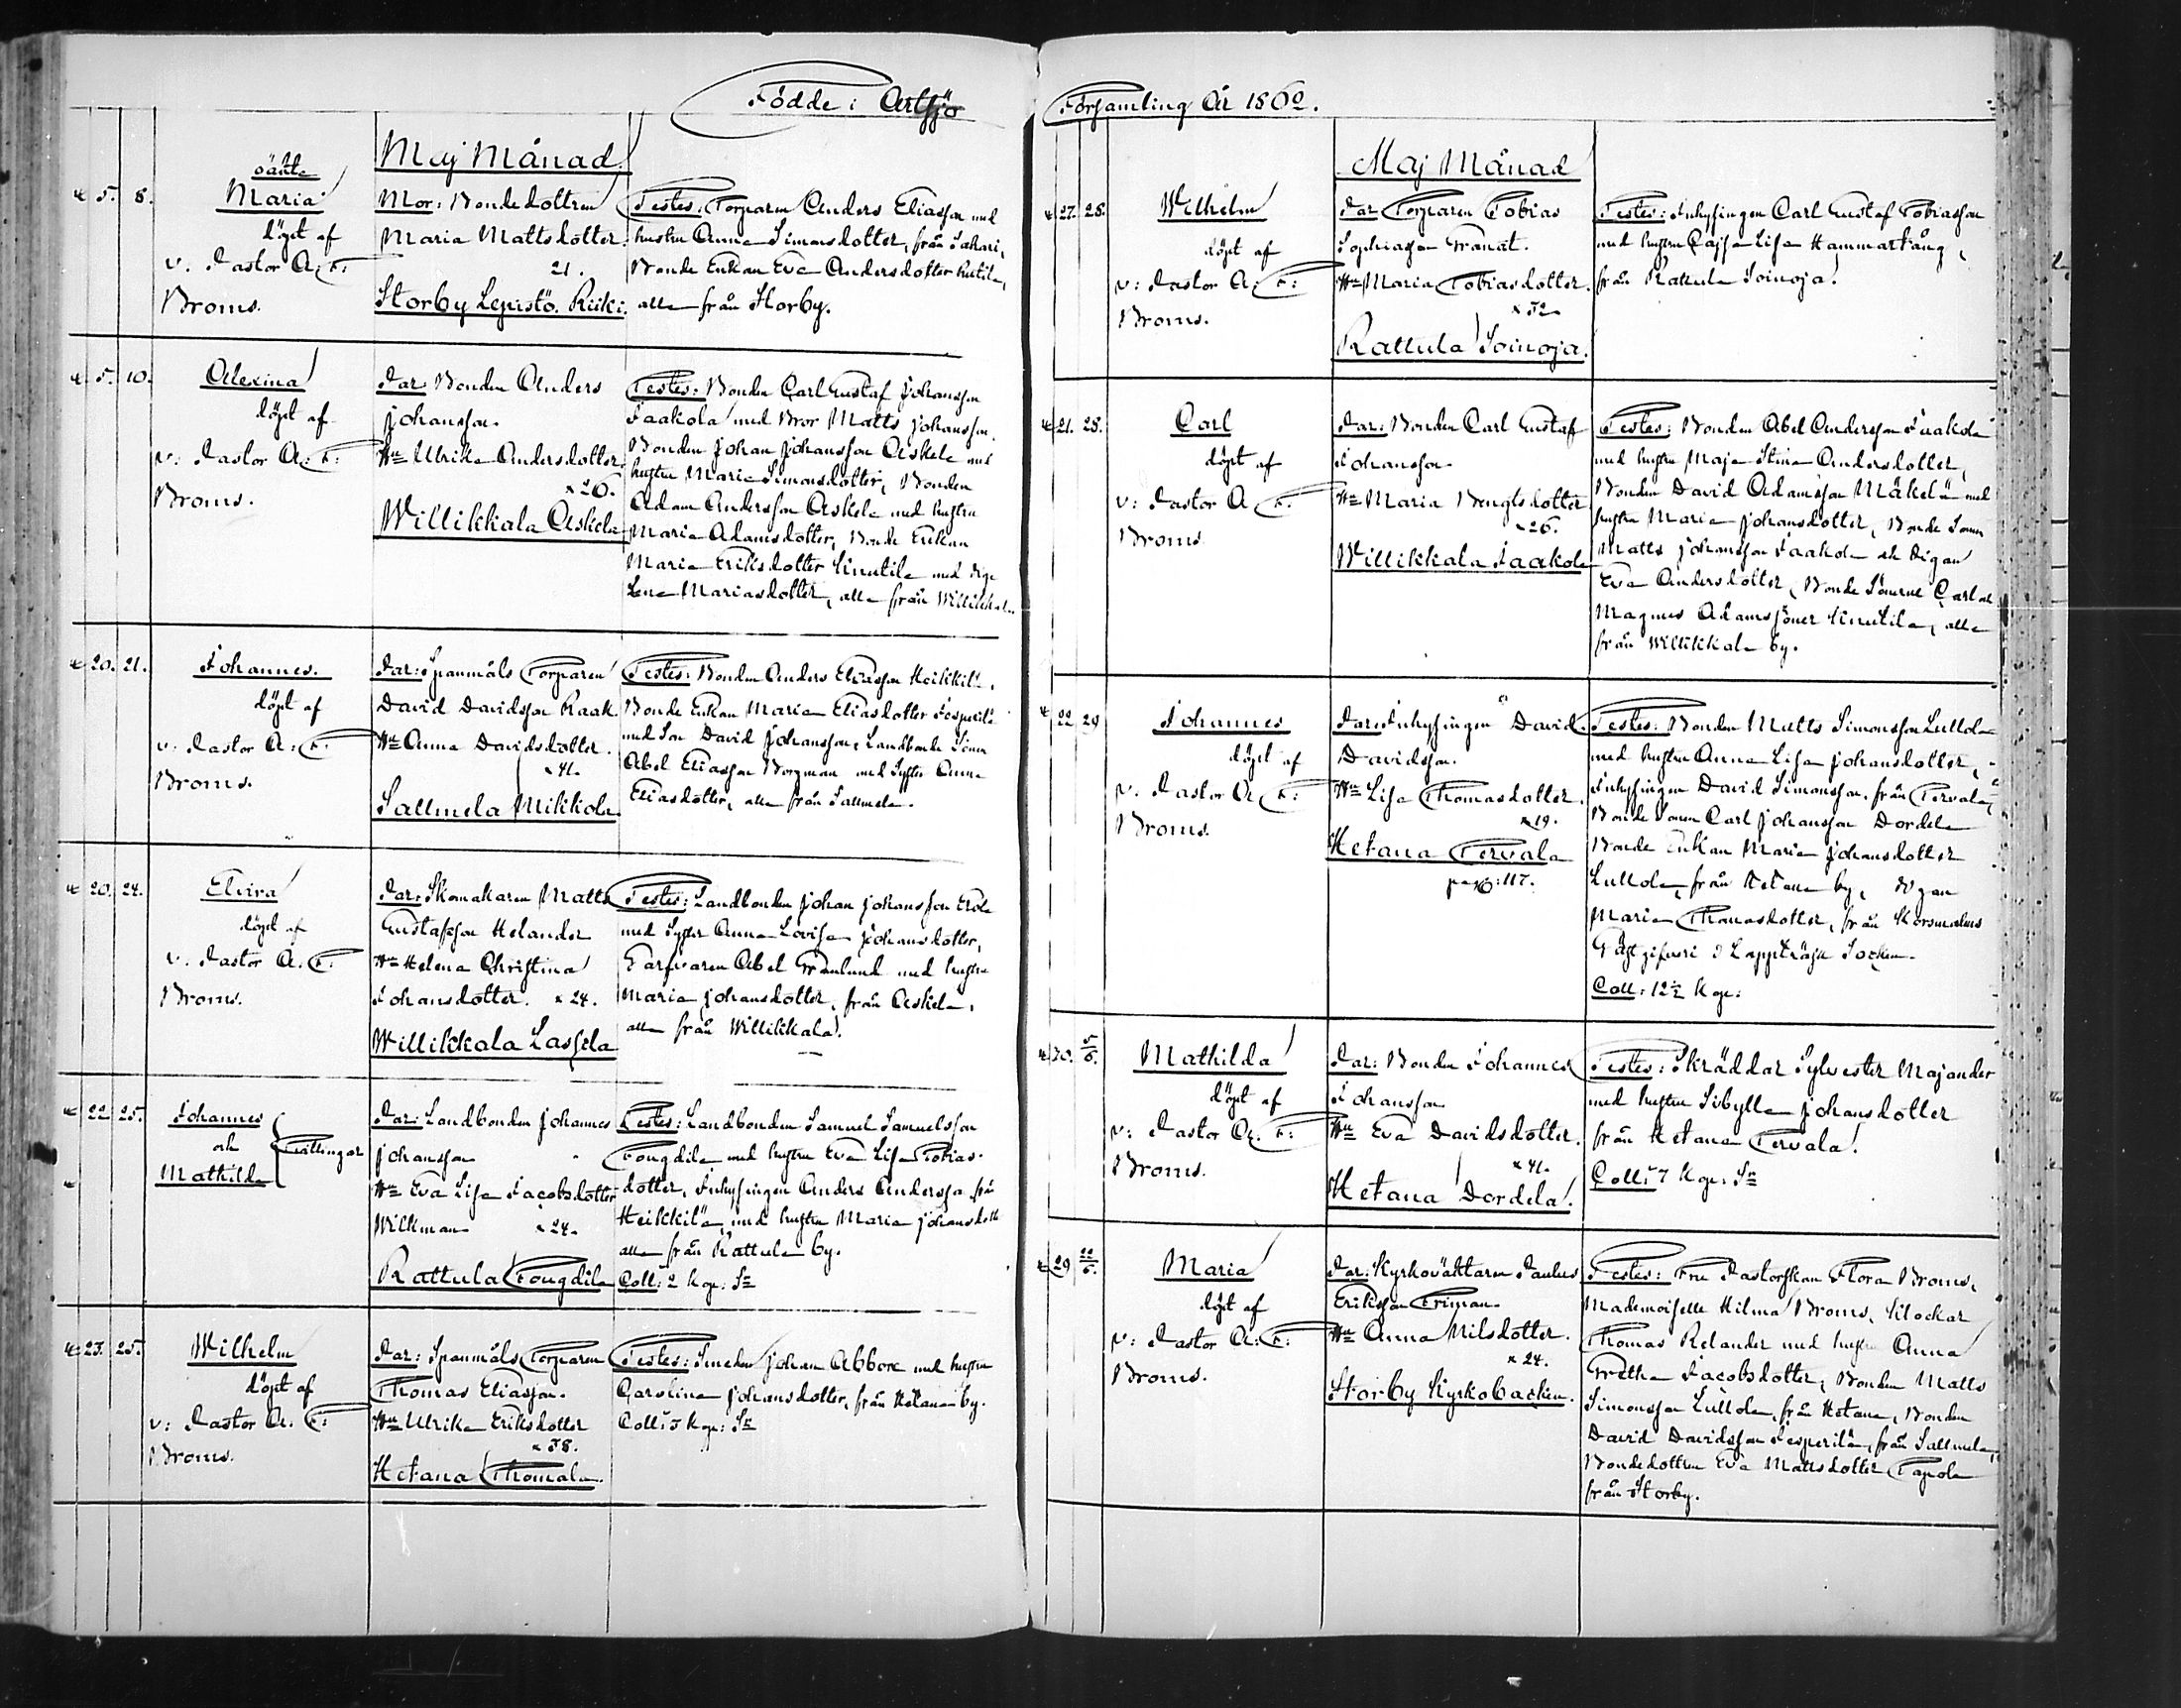 Födde i Artsjö
Maj Månad
5. 8.
oäkta
Maria
döpt af
v. Pastor A. F.
Broms.
Mor: Bondedottren
Maria Mattsdotter.
21.
Storby Lepistö.
Testes: Torparen Anders Eliasson med
hustru Anna Simonsdotter, från
Bonde Enkan Eva Andersdotter
alla från Storby.
5. 10.
Alexina
döpt af
v: Pastor A: F:
Broms.
Far: Bonden Anders
Johansson.
Hu Ulrika Andersdotter.
x 26.
Willikkala Askela
Testes: Bonden Carl Gustaf Johansson
Jaakola med Bror Matts Johansson.
Bonden Johan Johansson Askela med
hustru Maria Simonsdotter, Bonden
Adam Andersson Askela med hustru
Maria Adamsdotter, Bonde Enkan
Maria Eriksdotter Knutila med Piga
Lena Mariasdotter, alla från Willikkala.
20. 21.
Johannes.
döpt af
v: Pastor A: F:
Broms.
Far: Spanmåls Torparen
David Davidsson Raak.
Hu Anna Davidsdotter.
x 41.
Sallmela Mikkola.
Testes: Bonden Anders Eliasson Heikkilä,
Bonde Enkan Maria Eliasdotter Jesperilä
med Son David Johansson, Landbonde Sonen
Abel Eliasson Borgman med Syster Anna
Eliasdotter, alla från Sallmela.
20. 24.
Elvira
döpt af
v. Pastor A. F.
Broms.
Far: Skomakaren Matts
Gustafsson Helander
Hu Helena Christina
Johansdotter. x 24.
Willikkala Lassila
Testes: Landbonden Johan Johansson
med Syster Anna Lovisa Johansdotter,
Garfvaren Abel Grönlund med hustru
Maria Johansdotter, från Askela,
alla från Willikkala.
22 25.
Johannes
och Tvillingar
Mathilda
Far: Landbonden Johannes
Johansson
Hu Eva Lisa Jacobsdotter
Wilkman x 24.
Rattula Fougdila
Testes: Landbonden Samuel Samuelsson
Fougdila med hustru Eva Lisa Tobias-
dotter, Inhysingen Anders Andersson från
Heikkilä, med hustru Maria Johansdott
alla från Rattula by.
Coll: 2 kop: Sr
23. 25.
Wilhelm
döpt af
v: Pastor A. F:
Broms.
Far: Spanmåls Torparen
Thomas Eliasson.
Hu Ulrika Eriksdotter
x 38.
Hetana Thomala.
Testes: Smeden Johan Abborre med hustru
Carolina Johansdotter, från Hetana by.
Coll: 5 kop: Sr
Församling År 1862.
Maj Månad
27. 28.
Wilhelm
döpt af
v: Pastor A: F:
Broms.
Far Torparen Tobias
Sophiasson Granat.
Hu Maria Tobiasdotter.
x 32
Rattula Soinoja.
Testes: Inhysingen Carl Gustaf Tobiasson
med hustru Cajsa Lisa Hammarkång,
från Rattula Soinoja.
21. 28.
Carl
döpt af
v: Pastor A F:
Broms
Far: Bonden Carl Gustaf
Johansson
Hu Maria Bengtsdotter
x 26.
Willikkala Jaakola
Testes: Bonden Abel Andersson Jaakola
med hustru Maja Stina Andersdotter,
Bonden David Adamsson Mäkelä med
hustru Maria Johansdotter, Bonde Sonen
Matts Johansson Jaakola och Pigan
Eva Andersdotter, Bonde Sönerne Carl och
Magnus Adamssöner Knutila, alla
från Willikkala by.
22 29
Johannes
döpt af
v. Pastor A F:
Broms.
Far: Inhysingen David
Davidsson.
Hu Lisa Thomasdotter.
x 19.
Hetana Tervala
pag: 117.
Testes: Bonden Matts Simonsson Lullola
med hustru Anna Lisa Johansdotter,
Inhysingen David Simonsson från Tervala,
Bonde Sonen Carl Johansson Dordela
Bonde Enkan Maria Johansdotter
Lullola, från Hetana by, Pigan
Maria Thomasdotter, från Korsmalms
Gästgifveri i Lappträsk Socken.
Coll: 12½ kop:
30. 5/6.
Mathilda
döpt af
v: Pastor A: F:
Broms.
Far: Bonden Johannes
Johansson
Hu Eva Davidsdotter.
x 41.
Hetana Dordela.
Testes: Skräddar Sylvester Majander
med hustru Sibylla Johansdotter
från Hetana Tervala.
Coll: 7 kop: Sr
29 22/6.
Maria
döpt af
v: Pastor A: F:
Broms.
Far: Kyrkovaktaren Paulus
Eriksson Friman.
Hu Anna Nilsdotter.
x 24.
Storby Kyrkobacken.
Testes: Fru Pastorskan Flora Broms,
Mademoiselle Hilma Broms, Klockar
Thomas Relander med hustru Anna
Gretha Jacobsdotter, Bonden Matts
Simonsson Lullola, från Hetana, Bonden
David Davidsson Jesperilä, från Sallmela,
Bondedottren Eva Mattsdotter Tapola
från Storby.